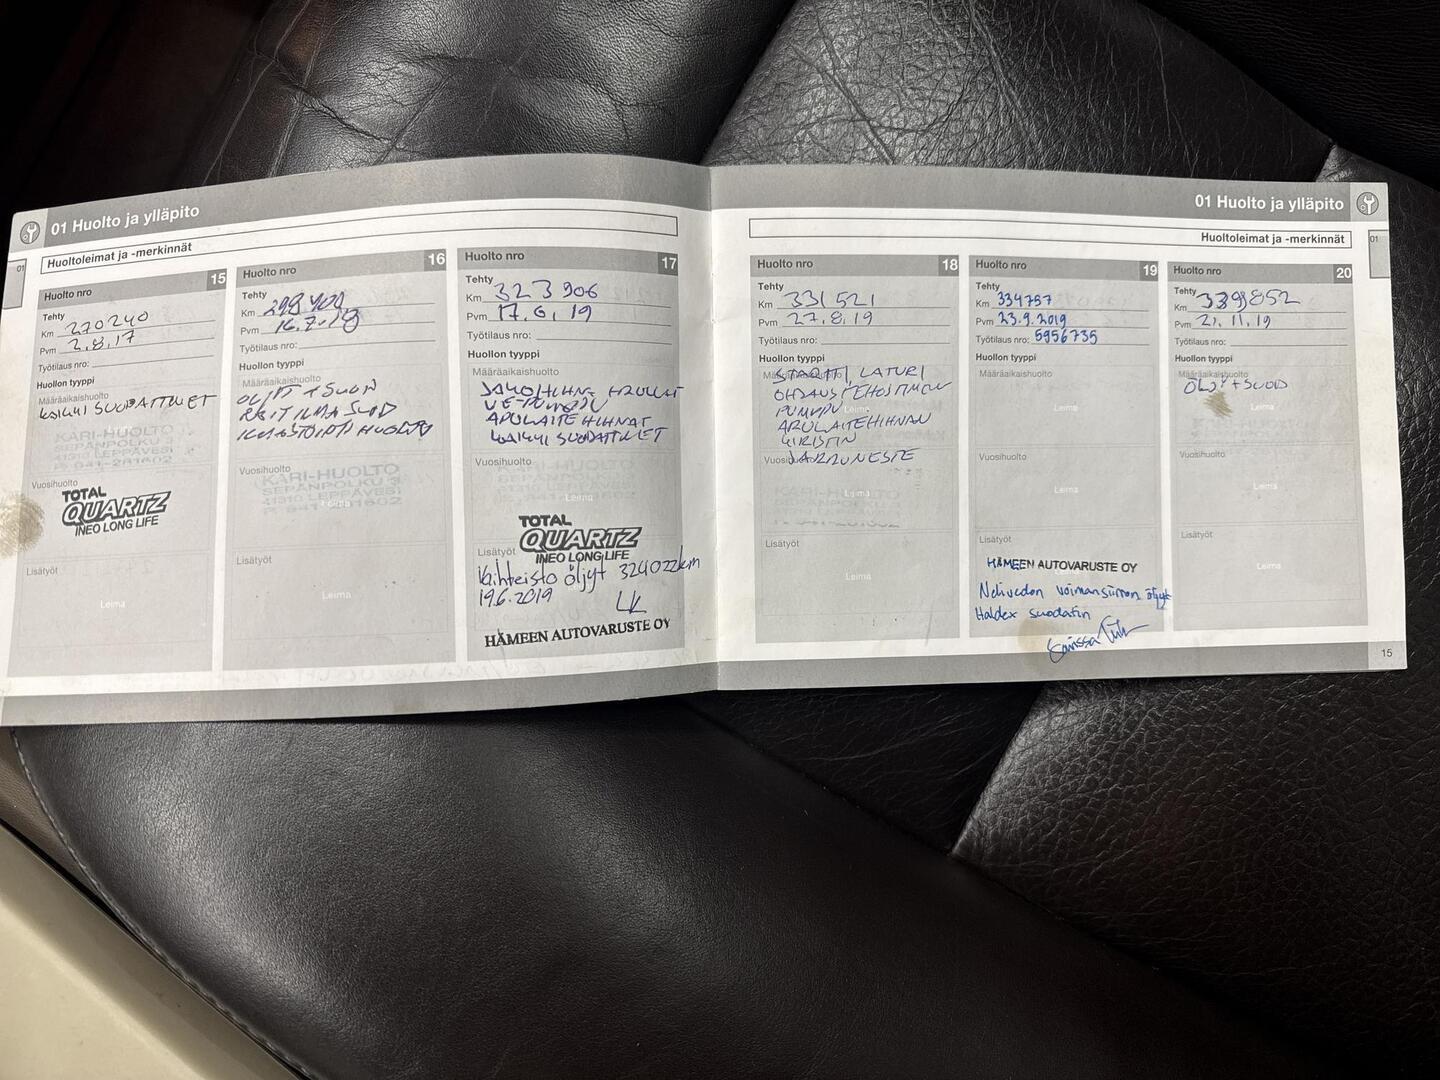 01 Huolto ja ylläpito
Huoltoleimat ja -merkinnät
01
Huolto nro 15
Tehty
Km 270240
Pvm 2.8.17
Työtilaus nro:
Huollon tyyppi
Määräaikaishuolto
KAIKKI SUODATTIMET
KARI-HUOLTO
SEPÄNPOLKU 3
41310 LEPPÄVESI
Vuosihuolto
TOTAL
QUARTZ
INEO LONG LIFE
Lisätyöt
Leima
Huolto nro 16
Tehty
Km
Pvm 16.7.18
Työtilaus nro:
Huollon tyyppi
Määräaikaishuolto
ÖLJYT + SUOD
RAITILMA SUOD
ILMASTOINTI HUOLTO
Vuosihuolto
KARI-HUOLTO
SEPÄNPOLKU 3
41310 LEPPÄVESI
Leima
Lisätyöt
Leima
Huolto nro 17
Tehty
Km 323 906
Pvm 17.6.19
Työtilaus nro:
Huollon tyyppi
Määräaikaishuolto
JAKOHIHNA + RULLAT
VE-PUMPPU
APULAITEHIHNAT
KAIKKI SUODATTIMET
Vuosihuolto
Leima
TOTAL
QUARTZ
INEO LONG LIFE
Lisätyöt
Vaihteisto öljyt 324022km
19.6.2019 LK
HÄMEEN AUTOVARUSTE OY
01 Huolto ja ylläpito
Huoltoleimat ja -merkinnät
01
Huolto nro 18
Tehty
Km 331 521
Pvm 27.8.19
Työtilaus nro:
Huollon tyyppi
Määräaikaishuolto
STARTTI, LATURI
OHJAUSTEHOSTIMEN
PUMPPU
Leima
APULAITEHIHNAN
KIRISTIN
Vuosihuolto
JARRUNESTE
Leima
Lisätyöt
Leima
Huolto nro 19
Tehty
Km 334757
Pvm 23.9.2019
Työtilaus nro: 5956735
Huollon tyyppi
Määräaikaishuolto
Leima
Vuosihuolto
Leima
Lisätyöt
HÄMEEN AUTOVARUSTE OY
Nelivedon voimansiirron öljyt
Haldex suodatin
Huolto nro 20
Tehty
Km 339852
Pvm 21.11.19
Työtilaus nro:
Huollon tyyppi
Määräaikaishuolto
ÖLJY + SUOD
Leima
Vuosihuolto
Leima
Lisätyöt
Leima
15